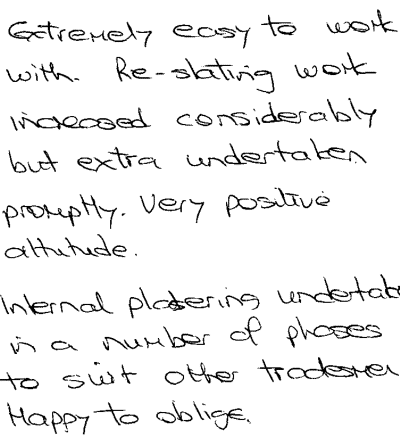 Extremely easy to work
with. Re-slating work
increased considerably
but extra undertaken
promptly. Very positive
attitude.
Internal plastering undertak
in a number of phases
to suit other tradesmen
Happy to oblige.